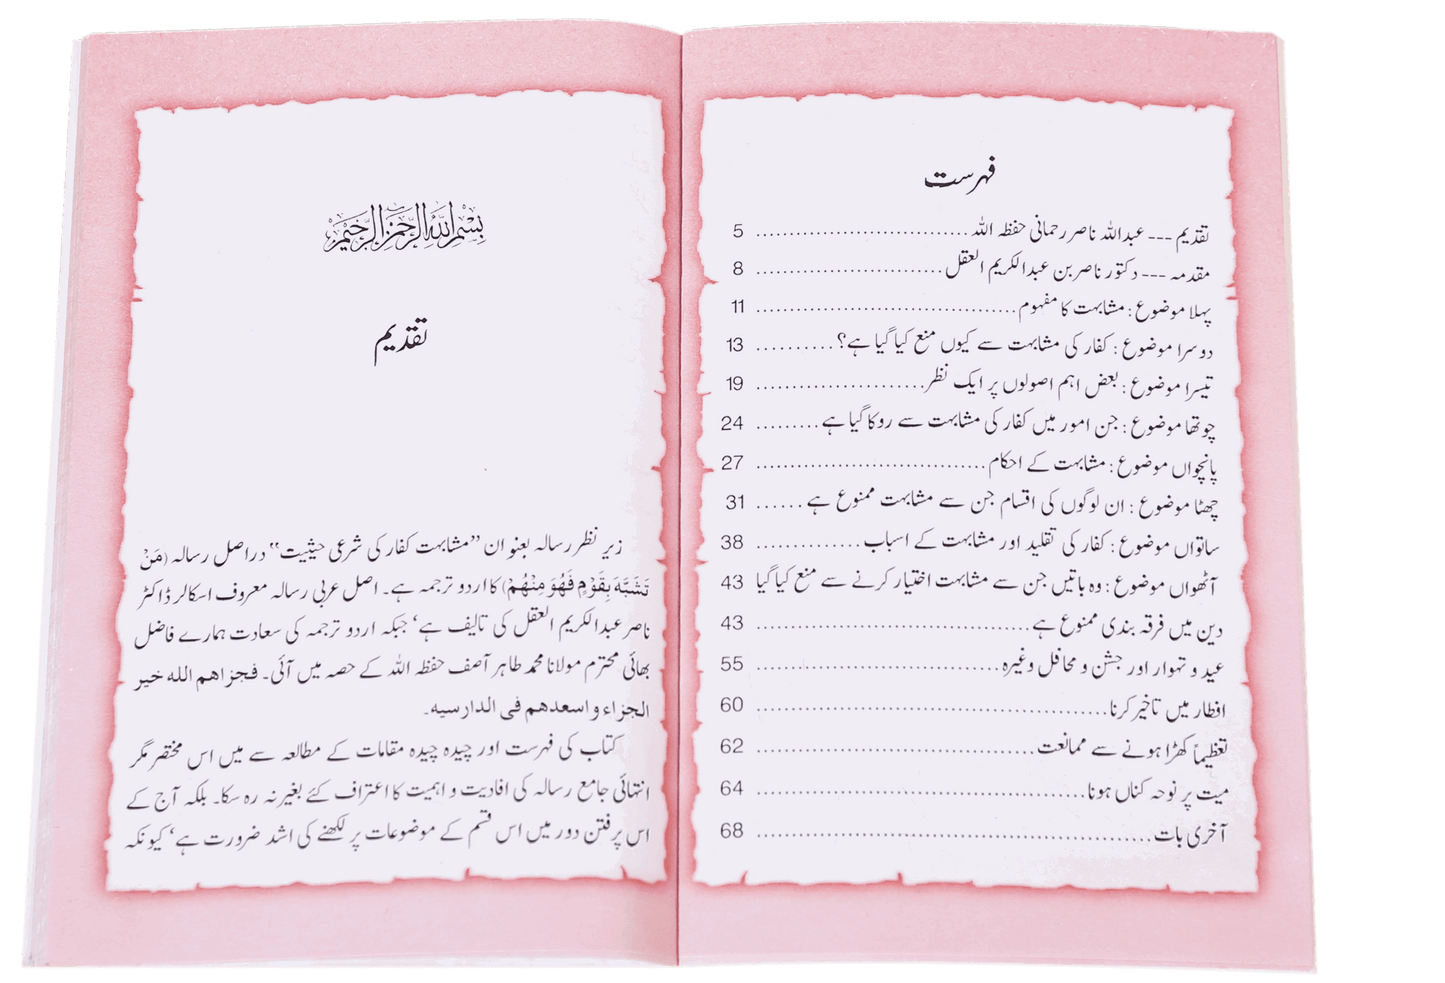 فہرست
تقدیم --- عبداللہ ناصر رحمانی حفظہ اللہ ................................ 5
مقدمہ --- دکتور ناصر بن عبدالکریم العقل ............................ 8
پہلا موضوع : مشابہت کا مفہوم ....................................... 11
دوسرا موضوع : کفار کی مشابہت سے کیوں منع کیا گیا ہے؟ .......... 13
تیسرا موضوع : بعض اہم اصولوں پر ایک نظر ......................... 19
چوتھا موضوع : جن امور میں کفار کی مشابہت سے روکا گیا ہے ......... 24
پانچواں موضوع : مشابہت کے احکام ................................... 27
چھٹا موضوع : ان لوگوں کی اقسام جن سے مشابہت ممنوع ہے ...... 31
ساتواں موضوع : کفار کی تقلید اور مشابہت کے اسباب ............... 38
آٹھواں موضوع : وہ باتیں جن سے مشابہت اختیار کرنے سے منع کیا گیا 43
دین میں فرقہ بندی ممنوع ہے ......................................... 43
عید و تہوار اور جشن و محافل وغیرہ ..................................... 55
افطار میں تاخیر کرنا ..................................................... 60
تعظیماً کھڑا ہونے سے ممانعت .......................................... 62
میت پر نوحہ کناں ہونا .................................................. 64
آخری بات ............................................................ 68
بِسْمِ اللهِ الرَّحْمٰنِ الرَّحِيْمِ
تقدیم
زیر نظر رسالہ بعنوان ’’مشابہت کفار کی شرعی حیثیت‘‘ دراصل رسالہ (مَنْ
تَشَبَّهَ بِقَوْمٍ فَهُوَ مِنْهُمْ) کا اردو ترجمہ ہے۔ اصل عربی رسالہ معروف اسکالر ڈاکٹر
ناصر عبدالکریم العقل کی تالیف ہے‘ جبکہ اردو ترجمہ کی سعادت ہمارے فاضل
بھائی محترم مولانا محمد طاہر آصف حفظہ اللہ کے حصہ میں آئی۔ فجزاهم الله خير
الجزاء و اسعدهم فى الدارسيه۔
کتاب کی فہرست اور چیدہ چیدہ مقامات کے مطالعہ سے میں اس مختصر مگر
انتہائی جامع رسالہ کی افادیت و اہمیت کا اعتراف کئے بغیر نہ رہ سکا۔ بلکہ آج کے
اس پرفتن دور میں اس قسم کے موضوعات پر لکھنے کی اشد ضرورت ہے‘ کیونکہ